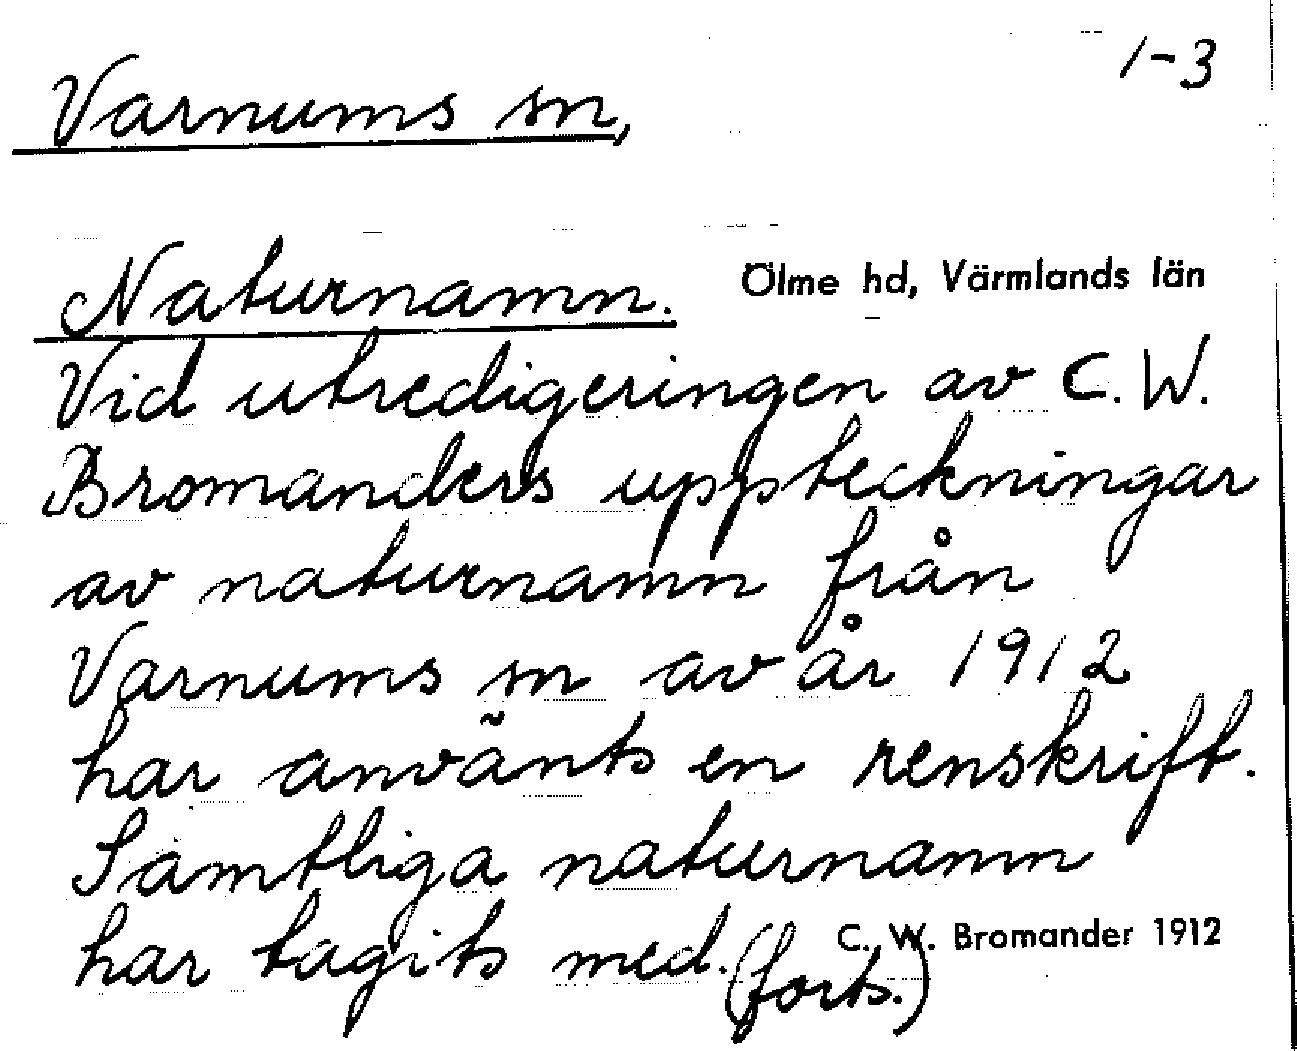 1-3
Varnums sn,
Naturnamn.
Ölme hd, Värmlands län
Vid utredigeringen av C. W.
Bromanders uppteckningar
av naturnamn från
Varnums sn av år 1912
har använts en renskrift.
Samtliga naturnamn
har tagits med. (forts.)
C. W. Bromander 1912